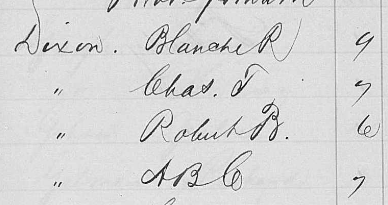 Dixon. Blanche R 9
" Chas. T 7
" Robert B. 6
" A B C 7